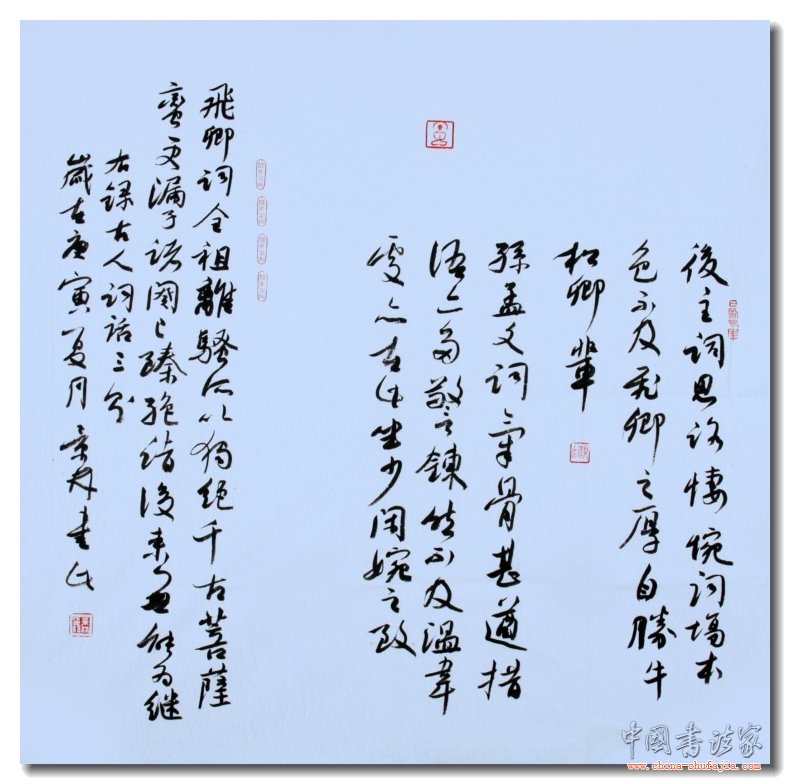 後主詞思路悽惋詞場本
色不及飛卿之厚自勝牛
松卿輩
孫孟文詞氣骨甚遒措
語亦多警鍊然不及溫韋
處亦在此坐少閑婉之致
飛卿詞全祖離騷所以獨絕千古菩薩
蠻更漏子諸闋已臻絕詣後來無能為继
右錄古人詞話三則
歲在庚寅夏月
書此
中國書法家
www.china-shufajia.com